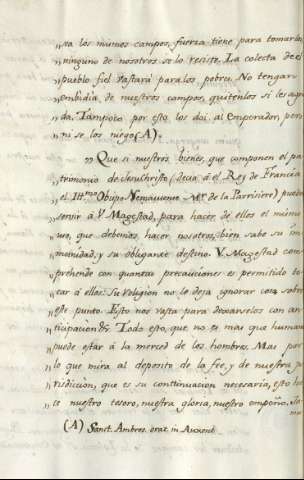 „sea los mismos campos, fuerza tiene para tomarlos
„ninguno de nosotros se lo resiste. La colecta de el
„pueblo fiel vastará para los pobres. No tengan
„embidia de nuestros campos, quitenlos si les agra
„da. Tampoco por esto los doi al Emperador, pero
„ni se los niego (A).
„Que si nuestros bienes, que componen el pa
„trimonio de Jesuchristo (decia á el Rey de Francia
„el Ittmo Obispo Nemausense Mr de la Parrisiere) pueden
„servir á V. Magestad, para hacer de ellos el mismo
„uso, que debemos hacer nosotros, bien sabe su in
„munidad, y su obligante destino. V. Magestad com
„prehende con quantas precauciones es permitido to
„car á ellos. Su religion no le deja ignorar cosa sobre
„este punto. Esto nos vasta para deciarselos con an
„ticipacion. Todo esto, que no es mas que humano
„puede estar á la merced de los hombres. Mas por
„lo que mira al deposito de la fee, y de nuestra ju
„risdiccion, que es su continuacion necesaria, esto ha
„ce nuestro tesoro, nuestra gloria, nuestro empeño.
(A) Sanct. Ambros. orat. in Auxent.